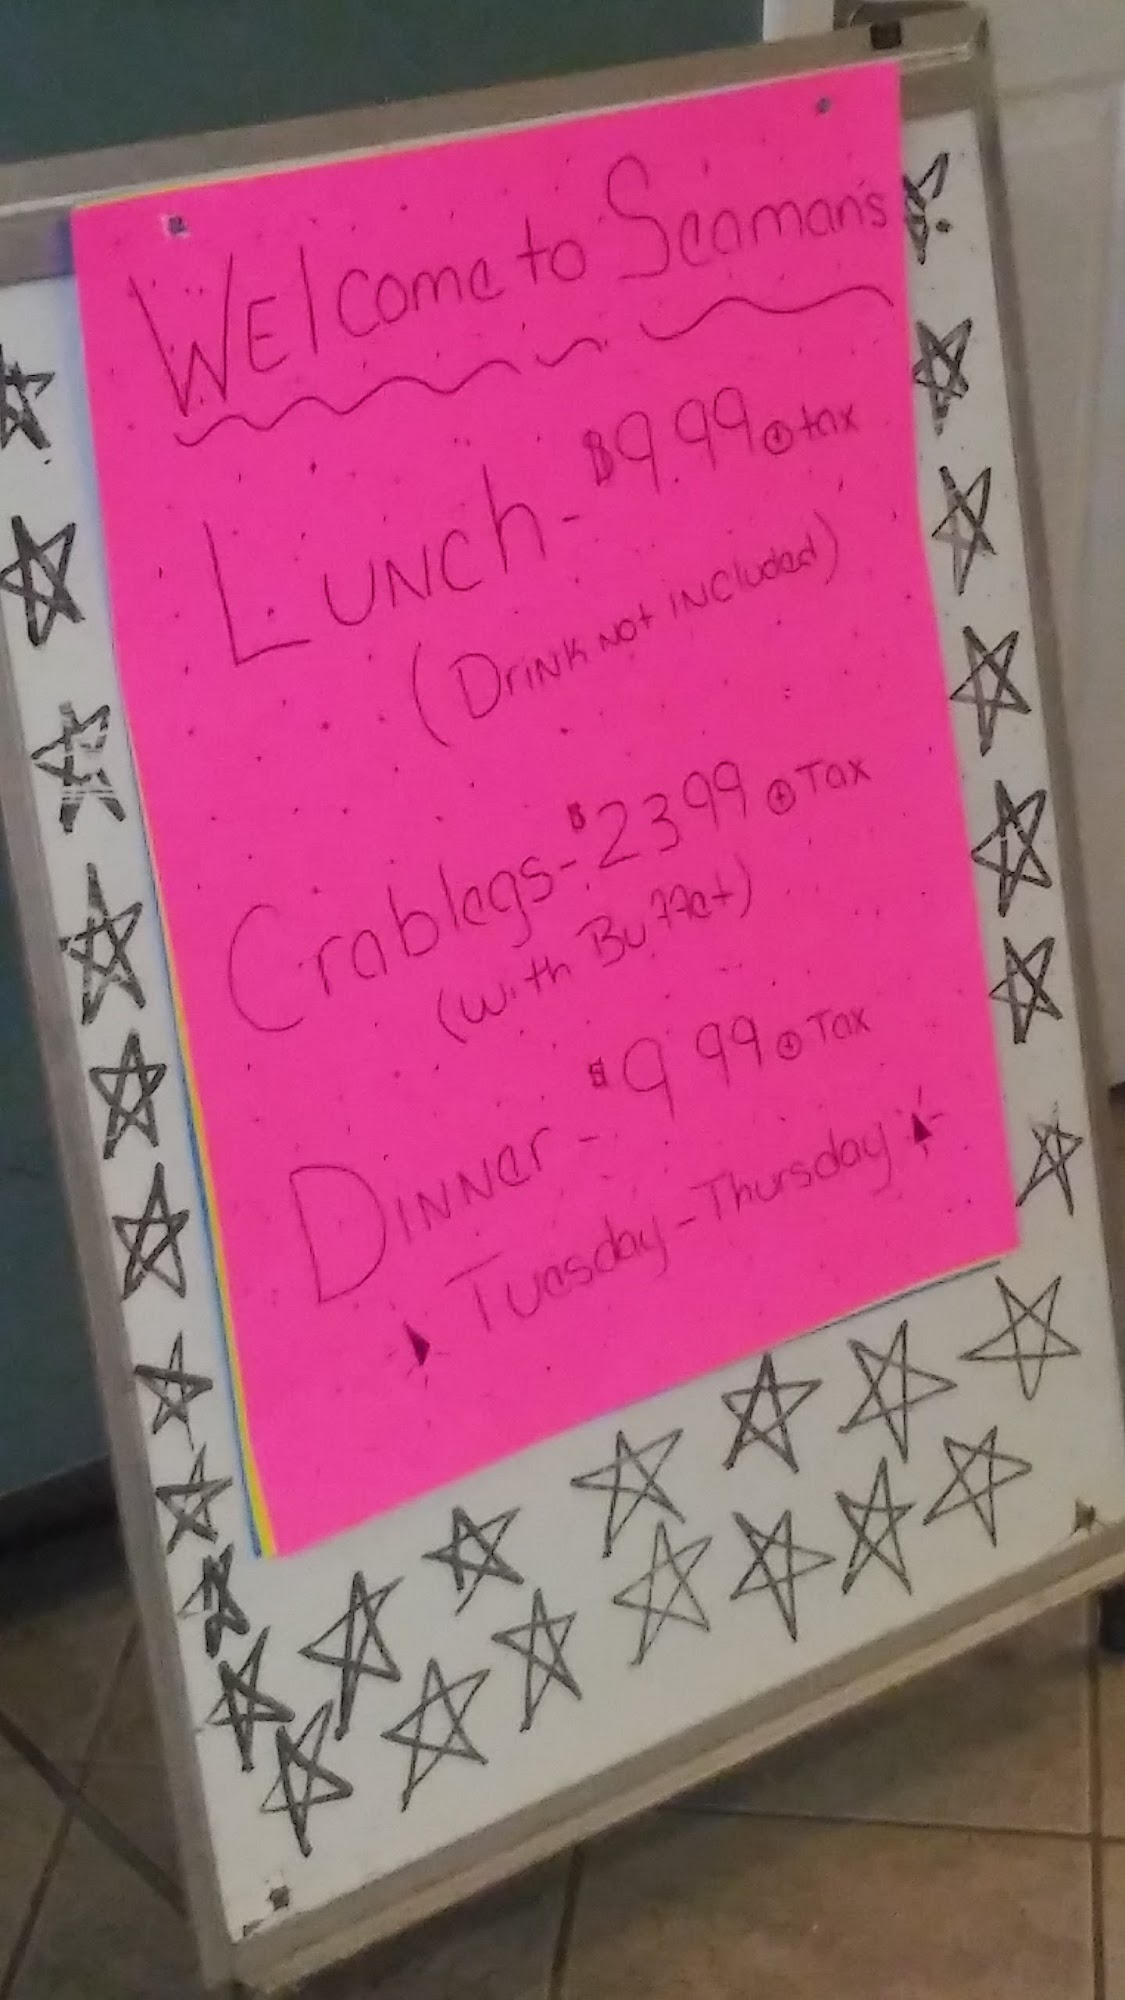 WElcome to Seaman's
LUNCh - $9.99 ⊕ tax
(DriNk Not INCluded)
Crablegs - $23 99 ⊕ Tax
(with Buffet)
DINNer - $9 99 ⊕ Tax
Tuesday - Thursday